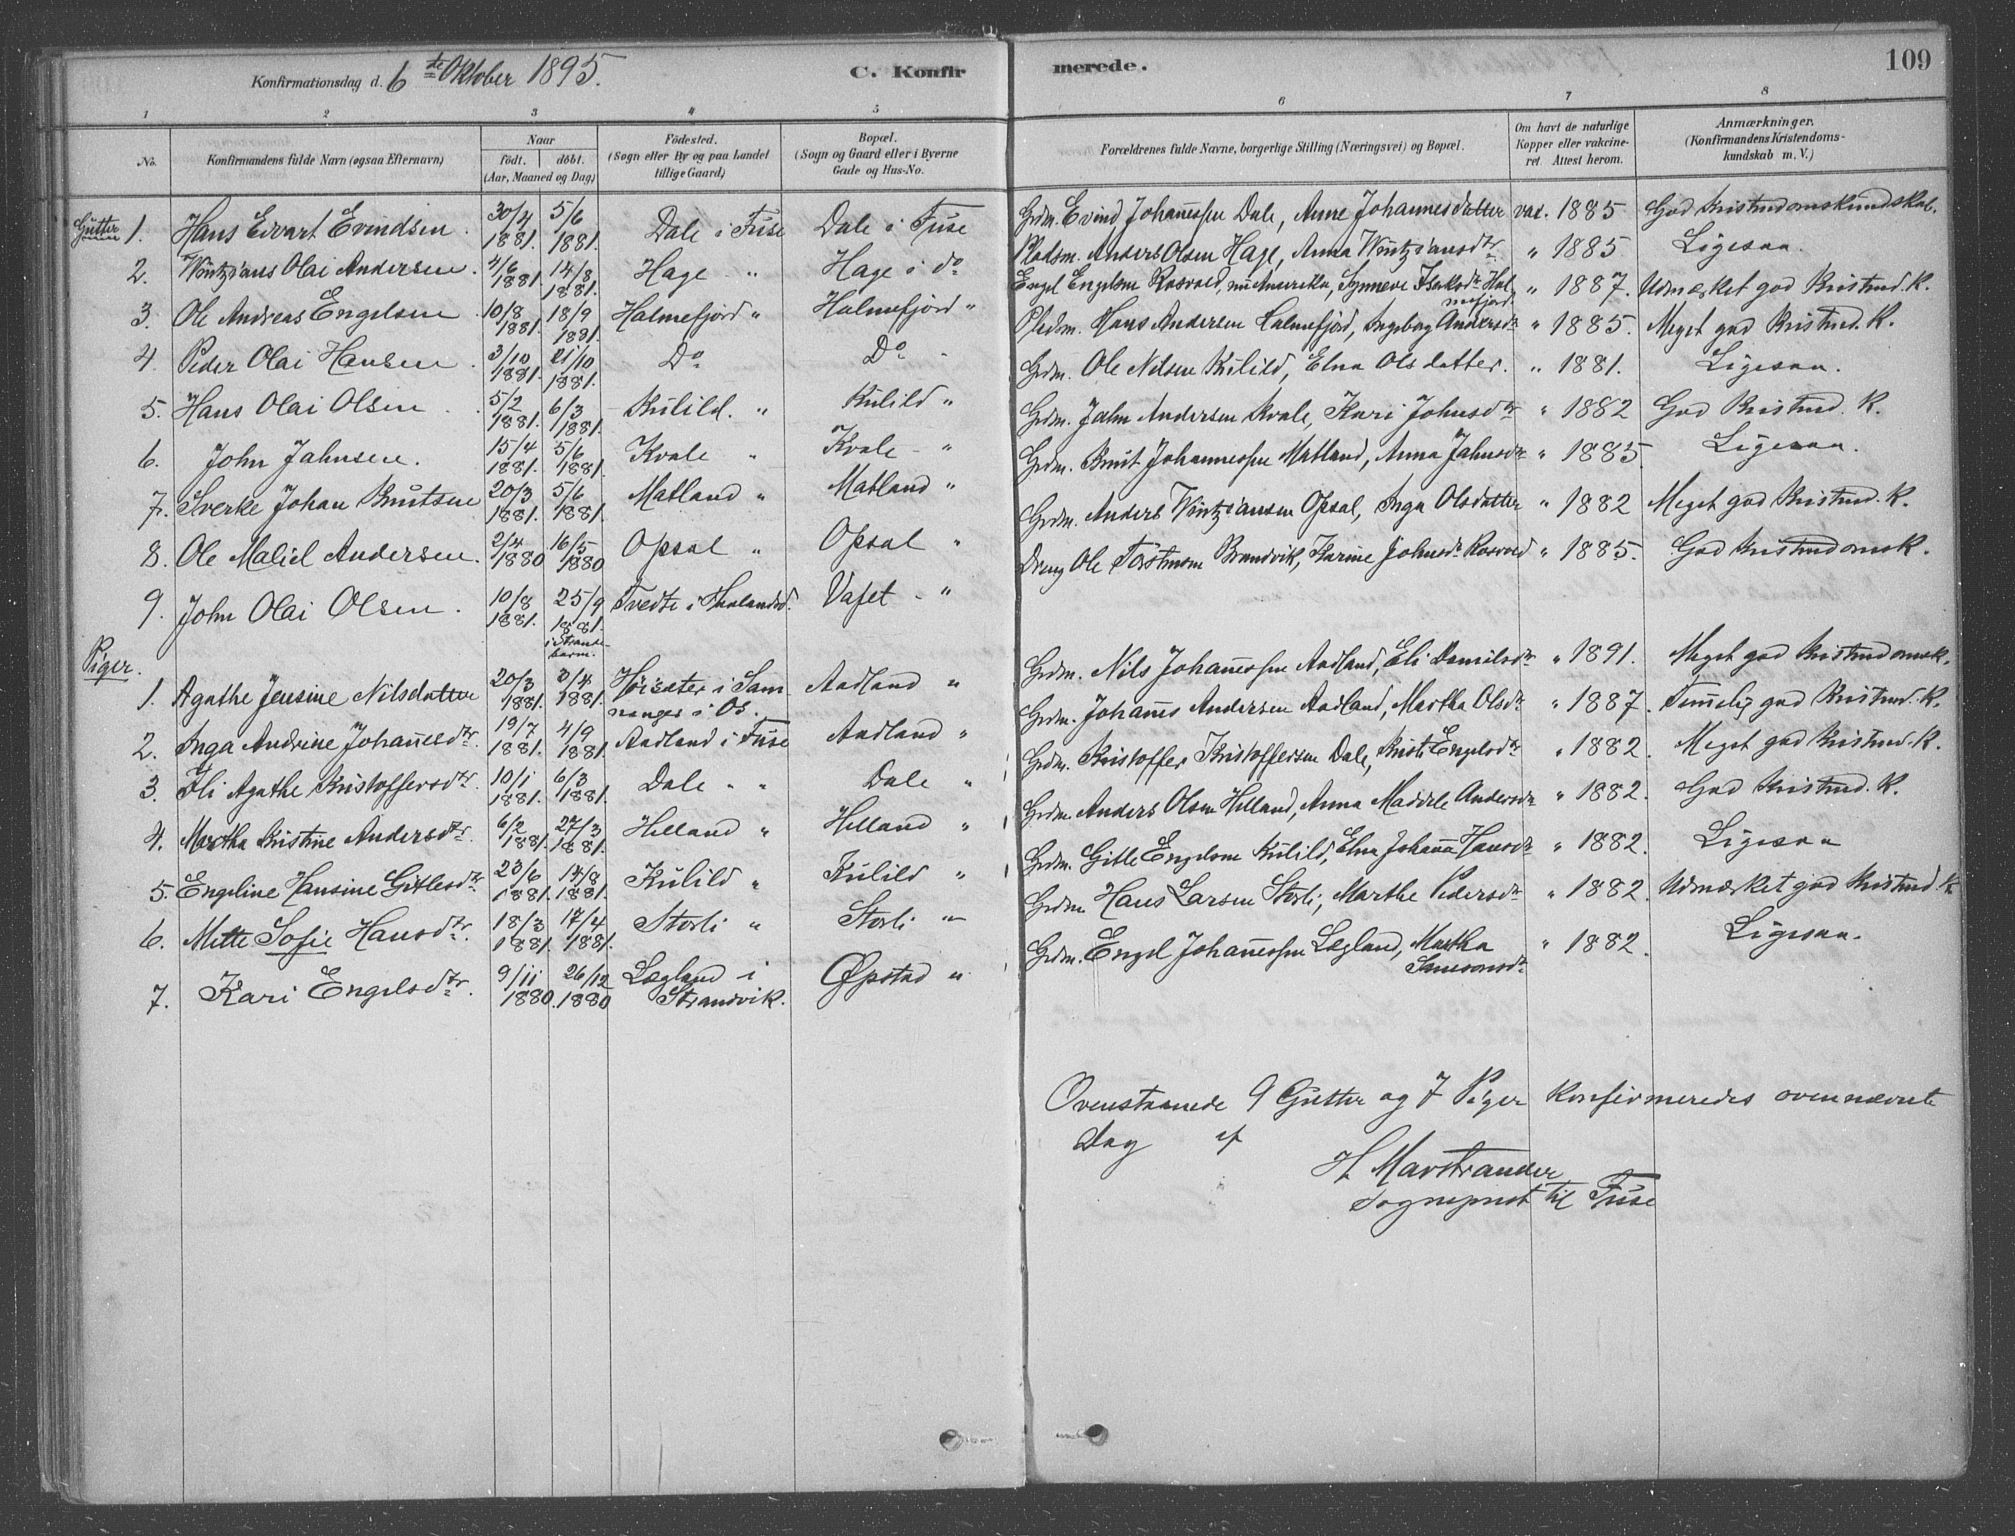 Konfirmationsdag d. 6te Oktober 1895. C. Konfirmerede. 109
1 2 3 4 5 6 7 8
No. Konfirmandens fulde Navn (ogsaa Efternavn) Naar födt. döbt. (Aar, Maaned og Dag) Födested. (Sogn eller By og paa Landet tillige Gaard) Bopæl. (Sogn og Gaard eller i Byerne Gade og Hus-No. Forældrenes fulde Navne, borgerlige Stilling (Næringsvei) og Bopæl. Om havt de naturlige Kopper eller vakcineret. Attest herom. Anmærkninger. (Konfirmandens Kristendomskundskab m. V.)
Gutter
1. Hans Edvart Evindsen. 30/4 1881. 5/6 1881. Dale i Fuse Dale i Fuse Grdm. Evind Johannessen Dale, Anne Johannesdatter vac. 1885 God Kristendomskundskab.
2. Wintzians Olai Andersen. 4/6 1881. 14/8 1881. Hage " Hage i do Pladsm. Anders Olsen Hage, Anna Wintziansdtr " 1885 Ligesaa.
3. Ole Andreas Engelsen 10/8 1881. 18/9 1881. Halmefjord " Halmefjord " Engel Engelsen Rosvold, nu Amerika, Synneve Isaksdr Halmefjord " 1887. Udmærket god Kristend. K.
4. Peder Olai Hansen. 3/10 1881. 21/10 1881. Do Do Pladsm. Hans Andersen Halmefjord, Ingeborg Andersdr " 1885. Meget god Kristend. K.
5. Hans Olai Olsen. 5/2 1881. 6/3 1881. Kulild. " Kulild " Grdm. Ole Nilsen Kulild, Elna Olsdatter. " 1881. Ligesaa.
6. John Jahnsen. 15/4 1881. 5/6 1881. Kvale " Kvale " Grdm. Jahn Andersen Kvale, Kari Johnsdtr " 1882 God Kristend. K.
7. Sverke Johan Knutsen 20/3 1881. 5/6 1881. Matland " Matland " Grdm. Knut Johannessen Matland, Anna Jahnsdr " 1885. Ligesaa.
8. Ole Maliel Andersen. 2/4 1880 16/5 1880 Opsal " Opsal " Grdm. Anders Wintziansen Opsal, Inga Olsdatter " 1882 Meget god Kristend. K.
9. John Olai Olsen. 10/8 1881. 25/9 1881. i Strandebarm. Tvedte i Aalandsd. Vafet " Dreng Ole Torstensen Brandvik, Karine Johnsdr Rosvold " 1885. God Kristendomsk.
Piger.
1. Agathe Jensine Nilsdatter 20/3 1881. 3/4 1881. Höisæter i Samnanger i Os. Aadland " Grdm. Nils Johannessen Aadland, Eli Danielsdr " 1891. Meget god Kristendomsk.
2. Inga Andrine Johannesdtr. 19/7 1881. 4/9 1881. Aadland i Fuse Aadland " Grdm. Johannes Andersen Aadland, Martha Olsdr " 1887. Temmelig god Kristend. K.
3. Eli Agathe Kristoffersdtr. 10/1 1881. 6/3 1881. Dale " Dale " Grdm. Kristoffer Kristoffersen Dale, Kristi Engelsdtr " 1882. Meget god Kristend. K.
4. Martha Kristine Andersdtr. 6/2 1881. 27/3 1881. Helland " Helland " Grdm. Anders Olsen Helland, Anna Madele Andersdr " 1882. God Kristend. K.
5. Engeline Hansine Gitlesdtr. 23/6 1881. 14/8 1881. Kulild " Kulild " Grdm. Gitle Engelsen Kulild, Elna Johanna Hansdr " 1882. Ligesaa
6. Mette Sofie Hansdtr. 18/3 1881. 17/4 1881. Storli " Storli " Grdm. Hans Larsen Storli, Marthe Pedersdr " 1882. Udmærket god Kristend. K
7. Kari Engelsdtr. 9/11 1880. 26/12 1880 Lægland i Strandvik. Øpstad " Grdm. Engel Johannessen Lægland, Martha Samsonsdr " 1882. Ligesaa.
Ovenstaaende 9 Gutter og 7 Piger konfirmeredes ovennævnte
Dag af
H. Marstrander
Sogneprest til Fuse